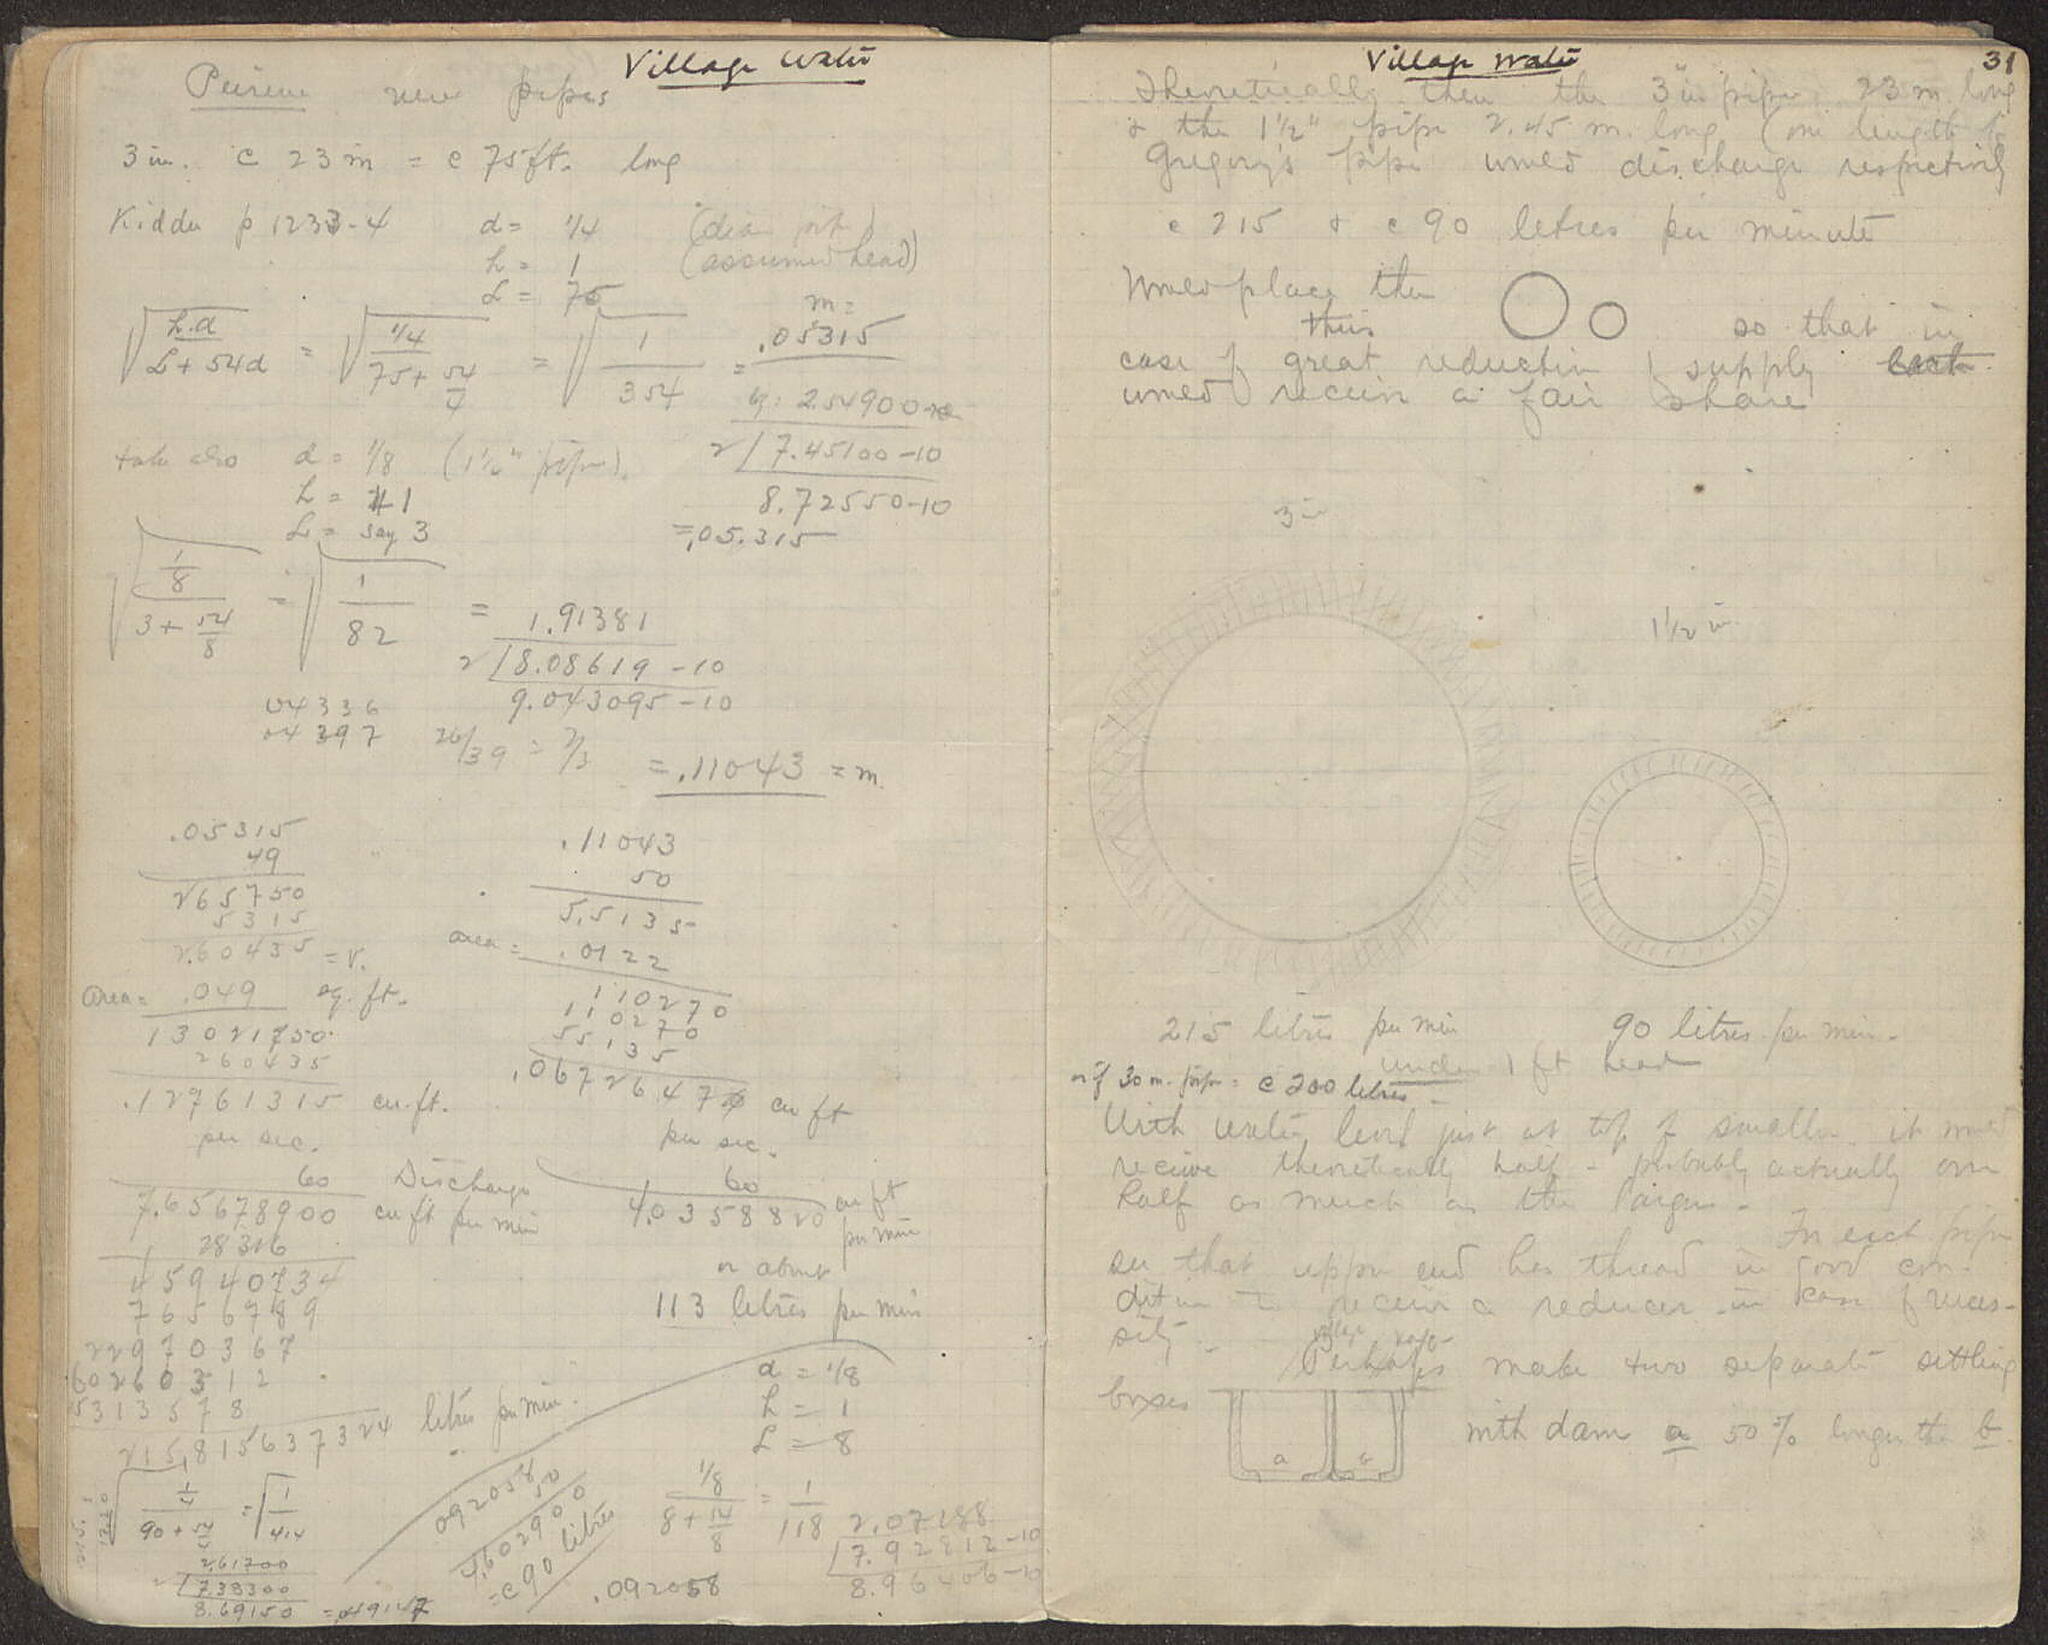 Village Water
Peirene new pipes
3 in. c 23 m = c 75 ft. long
Kidder p 1233-4 d = 1/4 (diam pipe)
h = 1 (assumed head)
L = 75
√ h.d / L + 54d = √ 1/4 / 75 + 54/4 = √ 1 / 354 = m = .05315
lg. 2.54900
2 / 7.45100-10
8.72550-10
= .05315
take also d = 1/8 (1 1/2" pipe).
h = 1
L = say 3
√ 1/8 / 3 + 54/8 = √ 1 / 82 = 1.91381
2 / 8.08619 -10
9.043095 -10
04336
04397 26/39 = 2/3 = .11043 = m.
.05315
49
265750
5315
2.60435 = v.
area = .049 sq. ft.
13021750
260435
.12761315 cu. ft.
per sec.
60 Discharge
7.65678900 cu ft per min
28316
45940734
7656789
22970367
60260312
5313578
215,815637324 litres per min.
.11043
50
5.5135
area = .0122
110270
110270
55135
.0672647 cu ft
per sec.
60
4.0358820 cu ft per min
or about
113 litres per min
d = 1/8
h = 1
L = 8
1/8 / 8 + 54/8 = 1 / 118
2.07188
7.92812-10
8.96406-10
.092058
092058
50
4.602900
= c 90 litres
√ 1/4 / 90 + 54/4 = √ 1 / 414
2.61700
2 / 7.38300
8.69150 = .049147
Village Water 31
Theoretically then the 3 in pipe 23 m. long
& the 1 1/2" pipe 2.45 m. long (one length of
Gregory's pipe would discharge respectively
c 215 & c 90 litres per minute
Would place them
thus so that in
case of great reduction of supply each
would receive a fair share
3 in
1 1/2 in
215 litres per min 90 litres per min.
under 1 ft head
or if 30 m. pipe = c 200 litres
With water level just at top of smaller it would
receive theoretically half - probably actually over
half as much as the larger.
In each pipe
see that upper end has thread in good con-
dition to receive a reducer in case of neces-
sity.
Perhaps make two separate settling
boxes
a b
with dam a 50% longer than b.